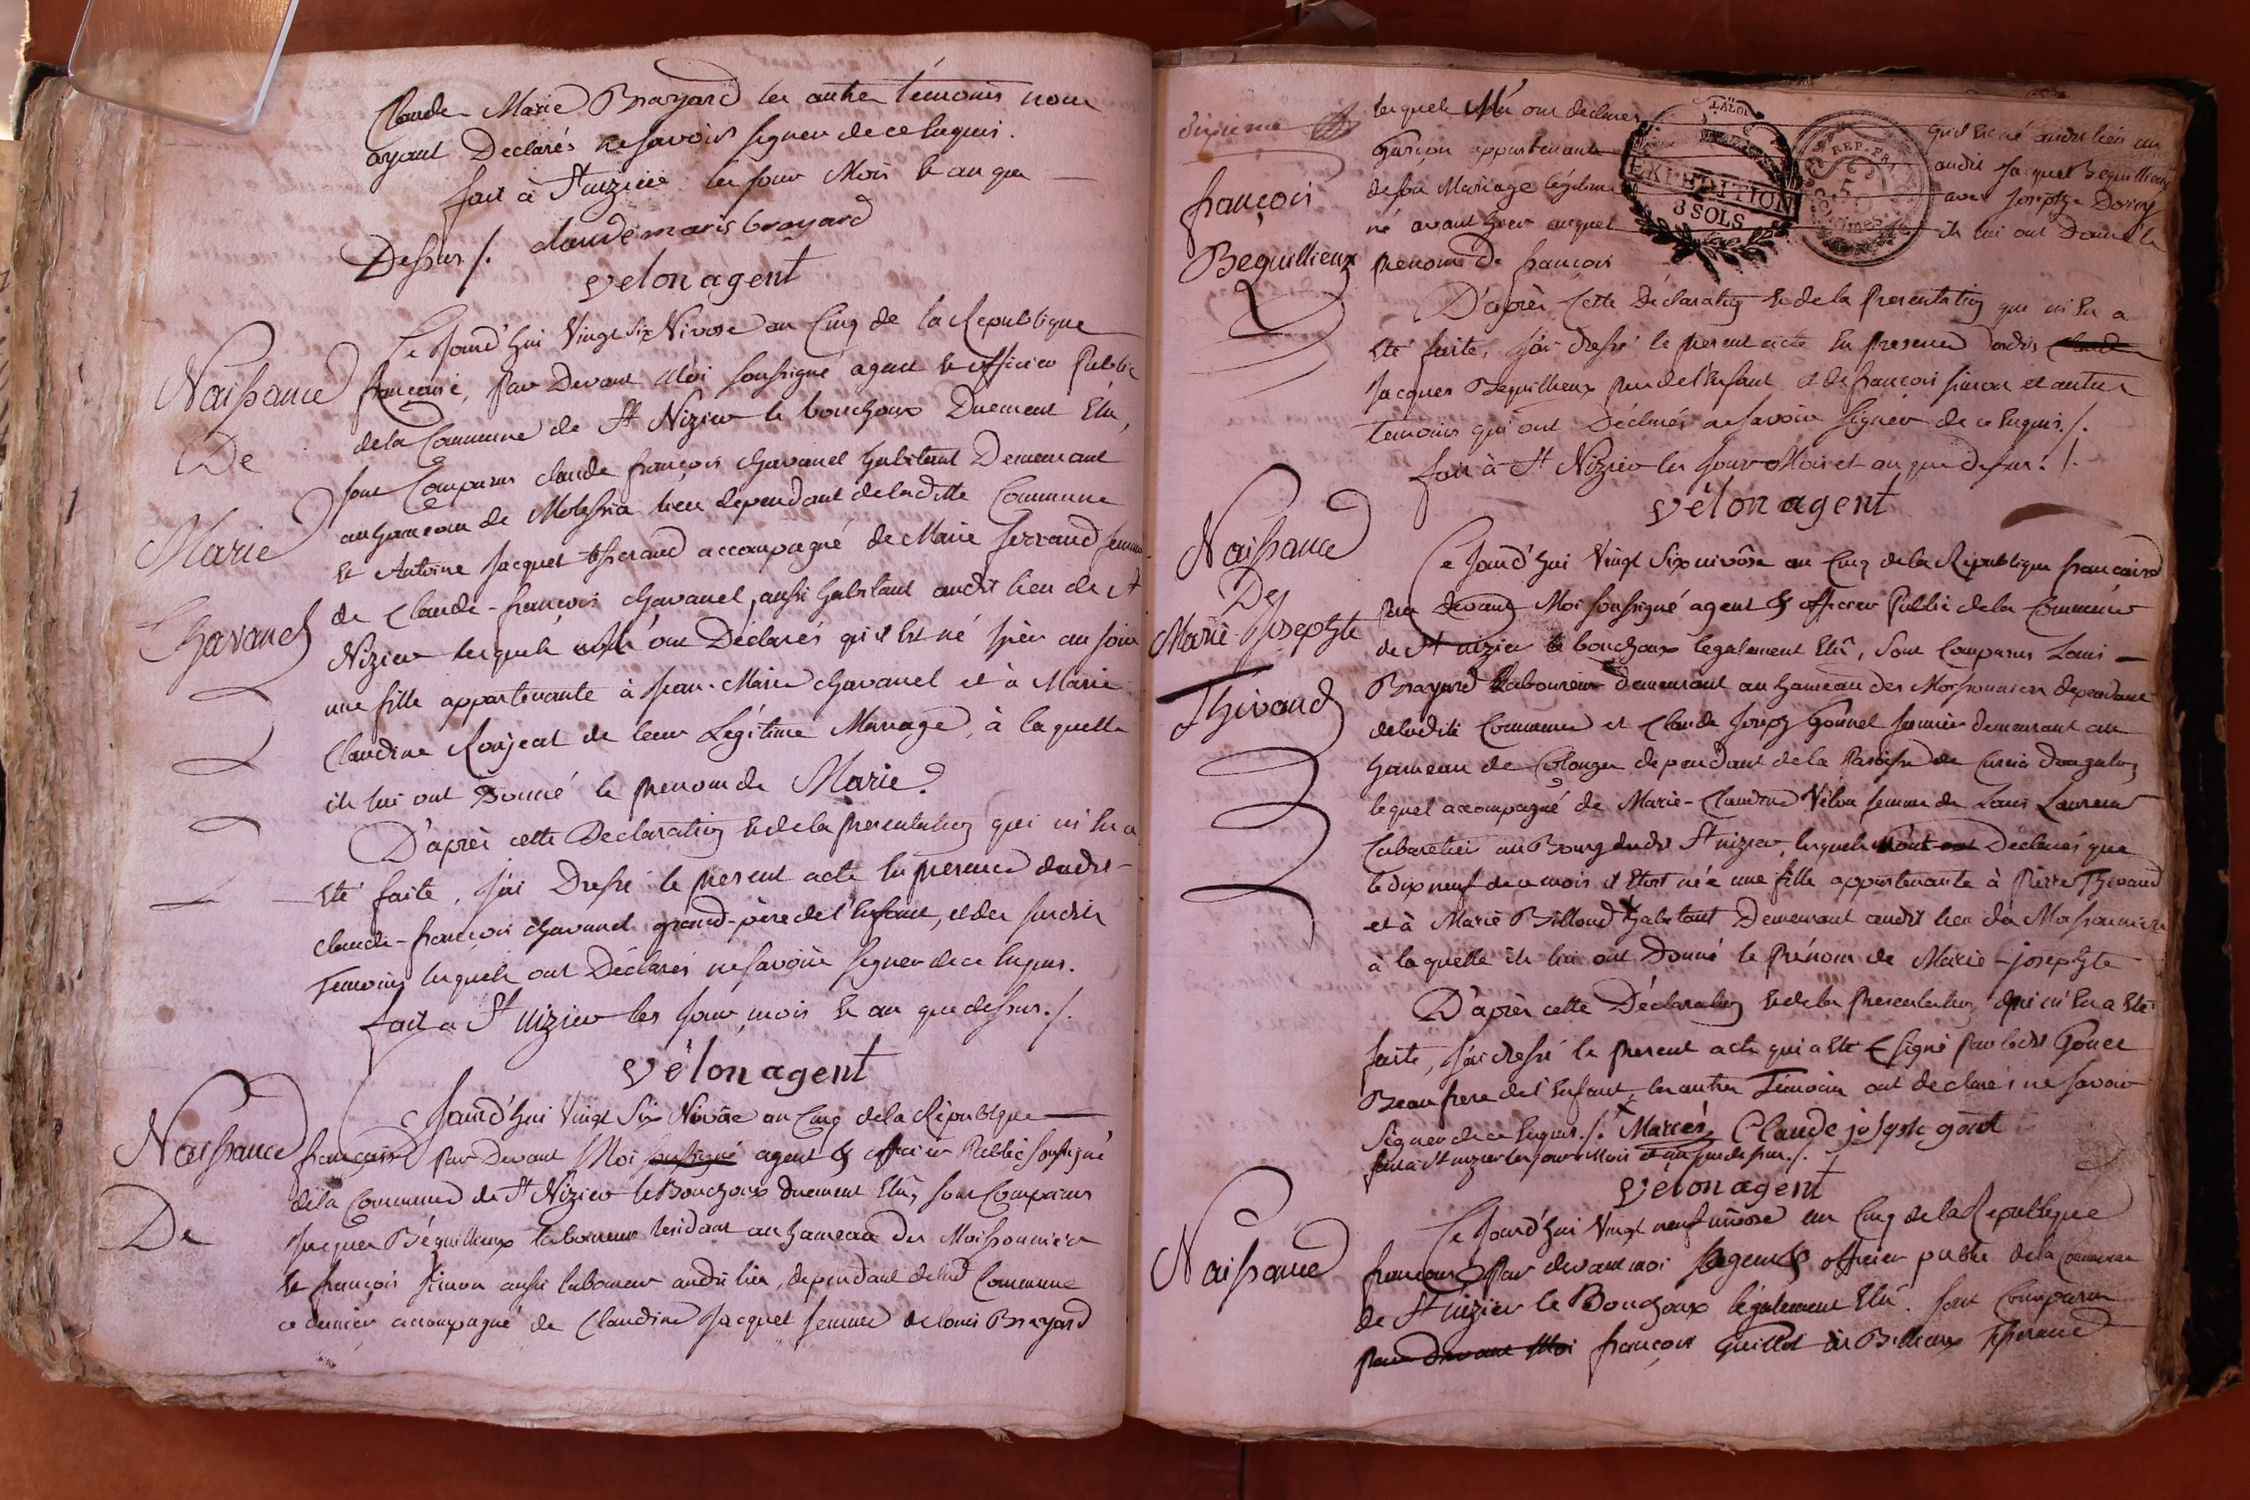 Claude Marie Brayard les autres témoins nous
ayant Declarés ne savoir signer de ce Enquis.
fait à St nizier les jour Mois et an que
Dessus /. claude marie brayard
velon agent
Naissance
De
Marie
Chavanel
Ce Jourd'hui Vingt Six Nivose an Cinq de la Republique
francaise, par Devant Moi soussigné agent et officier Public
de la Commune de St Nizier le bouchoux Duement Elu,
sont Comparus claude françois chavanel habitant Demeurant
au hameau de lieu dependant de laditte Commune
et Antoine Jacquet accompagné de Marie femme
de Claude-françois chavanel, aussi habitant audit lieu de St
Nizier lesquels ont Déclarés qu'il Est né hier au soir
une fille appartenante à Jean-Marie chavanel et à Marie
Claudine Ronjeat de leur Légitime Mariage, à laquelle
ils lui ont Donné le prenom de Marie.
D'après cette Declaration et de la presentation qui m'En a
Eté faite, j'ai Dressé le present acte En presence dudit
claude-françois chavanel grand-père de l'Enfant, et des susdits
Temoins lesquels ont Déclarés ne savoir signer de ce Enquis.
fait a St nizier les jour, mois et an que dessus./.
vélon agent
Naissance
De
Ce Jourd'hui Vingt Six Nivôse an Cinq de la République
francaise par Devant Moi soussigné agent et officier Public soussigné
de la Commune de St Nizier le Bouchoux duement Elu, sont Comparus
Jacques Béquillieux laboureur residant au hameau des Moissonnier
et françois Simon aussi laboureur audit lieu, dependant de lad Commune
ce dernier accompagné de Claudine Jacquet femme de louis Brayard
dixieme
françois
Bequillieux
lesquels M'en ont declarés qu'il Est né audit lieu un
Garçon appartenant audit Jacques Bequillieux
de son Mariage légitime avec Josephte
né avant hier auquel ils lui ont Donné le
EXPEDITION
8 SOLS
REP. FRA
prenom de françois
D'après Cette Déclaration et de la presentation qui m'En a
Eté faite, j'ai dressé le present acte En presence dudit
Jacques Bequillieux pere de l'Enfant et de françois simon et autres
temoins qui ont Déclarés ne savoir signer de ce Enquis./.
fait à St Nizier les jour Mois et an que dessus./.
vélon agent
Naissance
De
Marie-Josephte
Thivaud
Ce Jourd'hui Vingt Six nivôse an Cinq de la République francaise
par devant Moi soussigné agent et officier Public de la Commune
de St nizier le bouchoux legalement Elû, Sont Comparus Louis
Brayard laboureur demeurant au hameau des Moissonnier dependant
de ladite Commune et Claude Joseph Gonnet fermier demeurant au
hameau de Colonge dependant de la Paroisse de
lequel accompagné de Marie-Claudine Vélon femme de Louis Laurent
Cabaretier au Bourg dudit St nizier, lesquels Déclarés que
le dix neuf de ce mois il Etoit née une fille appartenante à Pierre Thivaud
et à Marie Billoud habitant Demeurant audit lieu des Moissonnier
à laquelle ils lui ont Donné le Prénom de Marie-josephte
D'après cette Déclaration et de la presentation qui m'En a Eté
faite, j'ai dressé le present acte qui a Eté signé par ledit Gonet
Beau frere de l'Enfant, les autres Témoins ont declarés ne savoir
signer de ce Enquis./. Claude
fait à St nizier les jour Mois et an que dessus./.
vélon agent
Naissance
Ce Jourd'hui Vingt neuf nivôse an Cinq de la Republique
francaise par devant moi agent et officier public de la Commune
de St nizier le Bouchoux légalement Elu. sont Comparus
par devant Moi françois Guillot